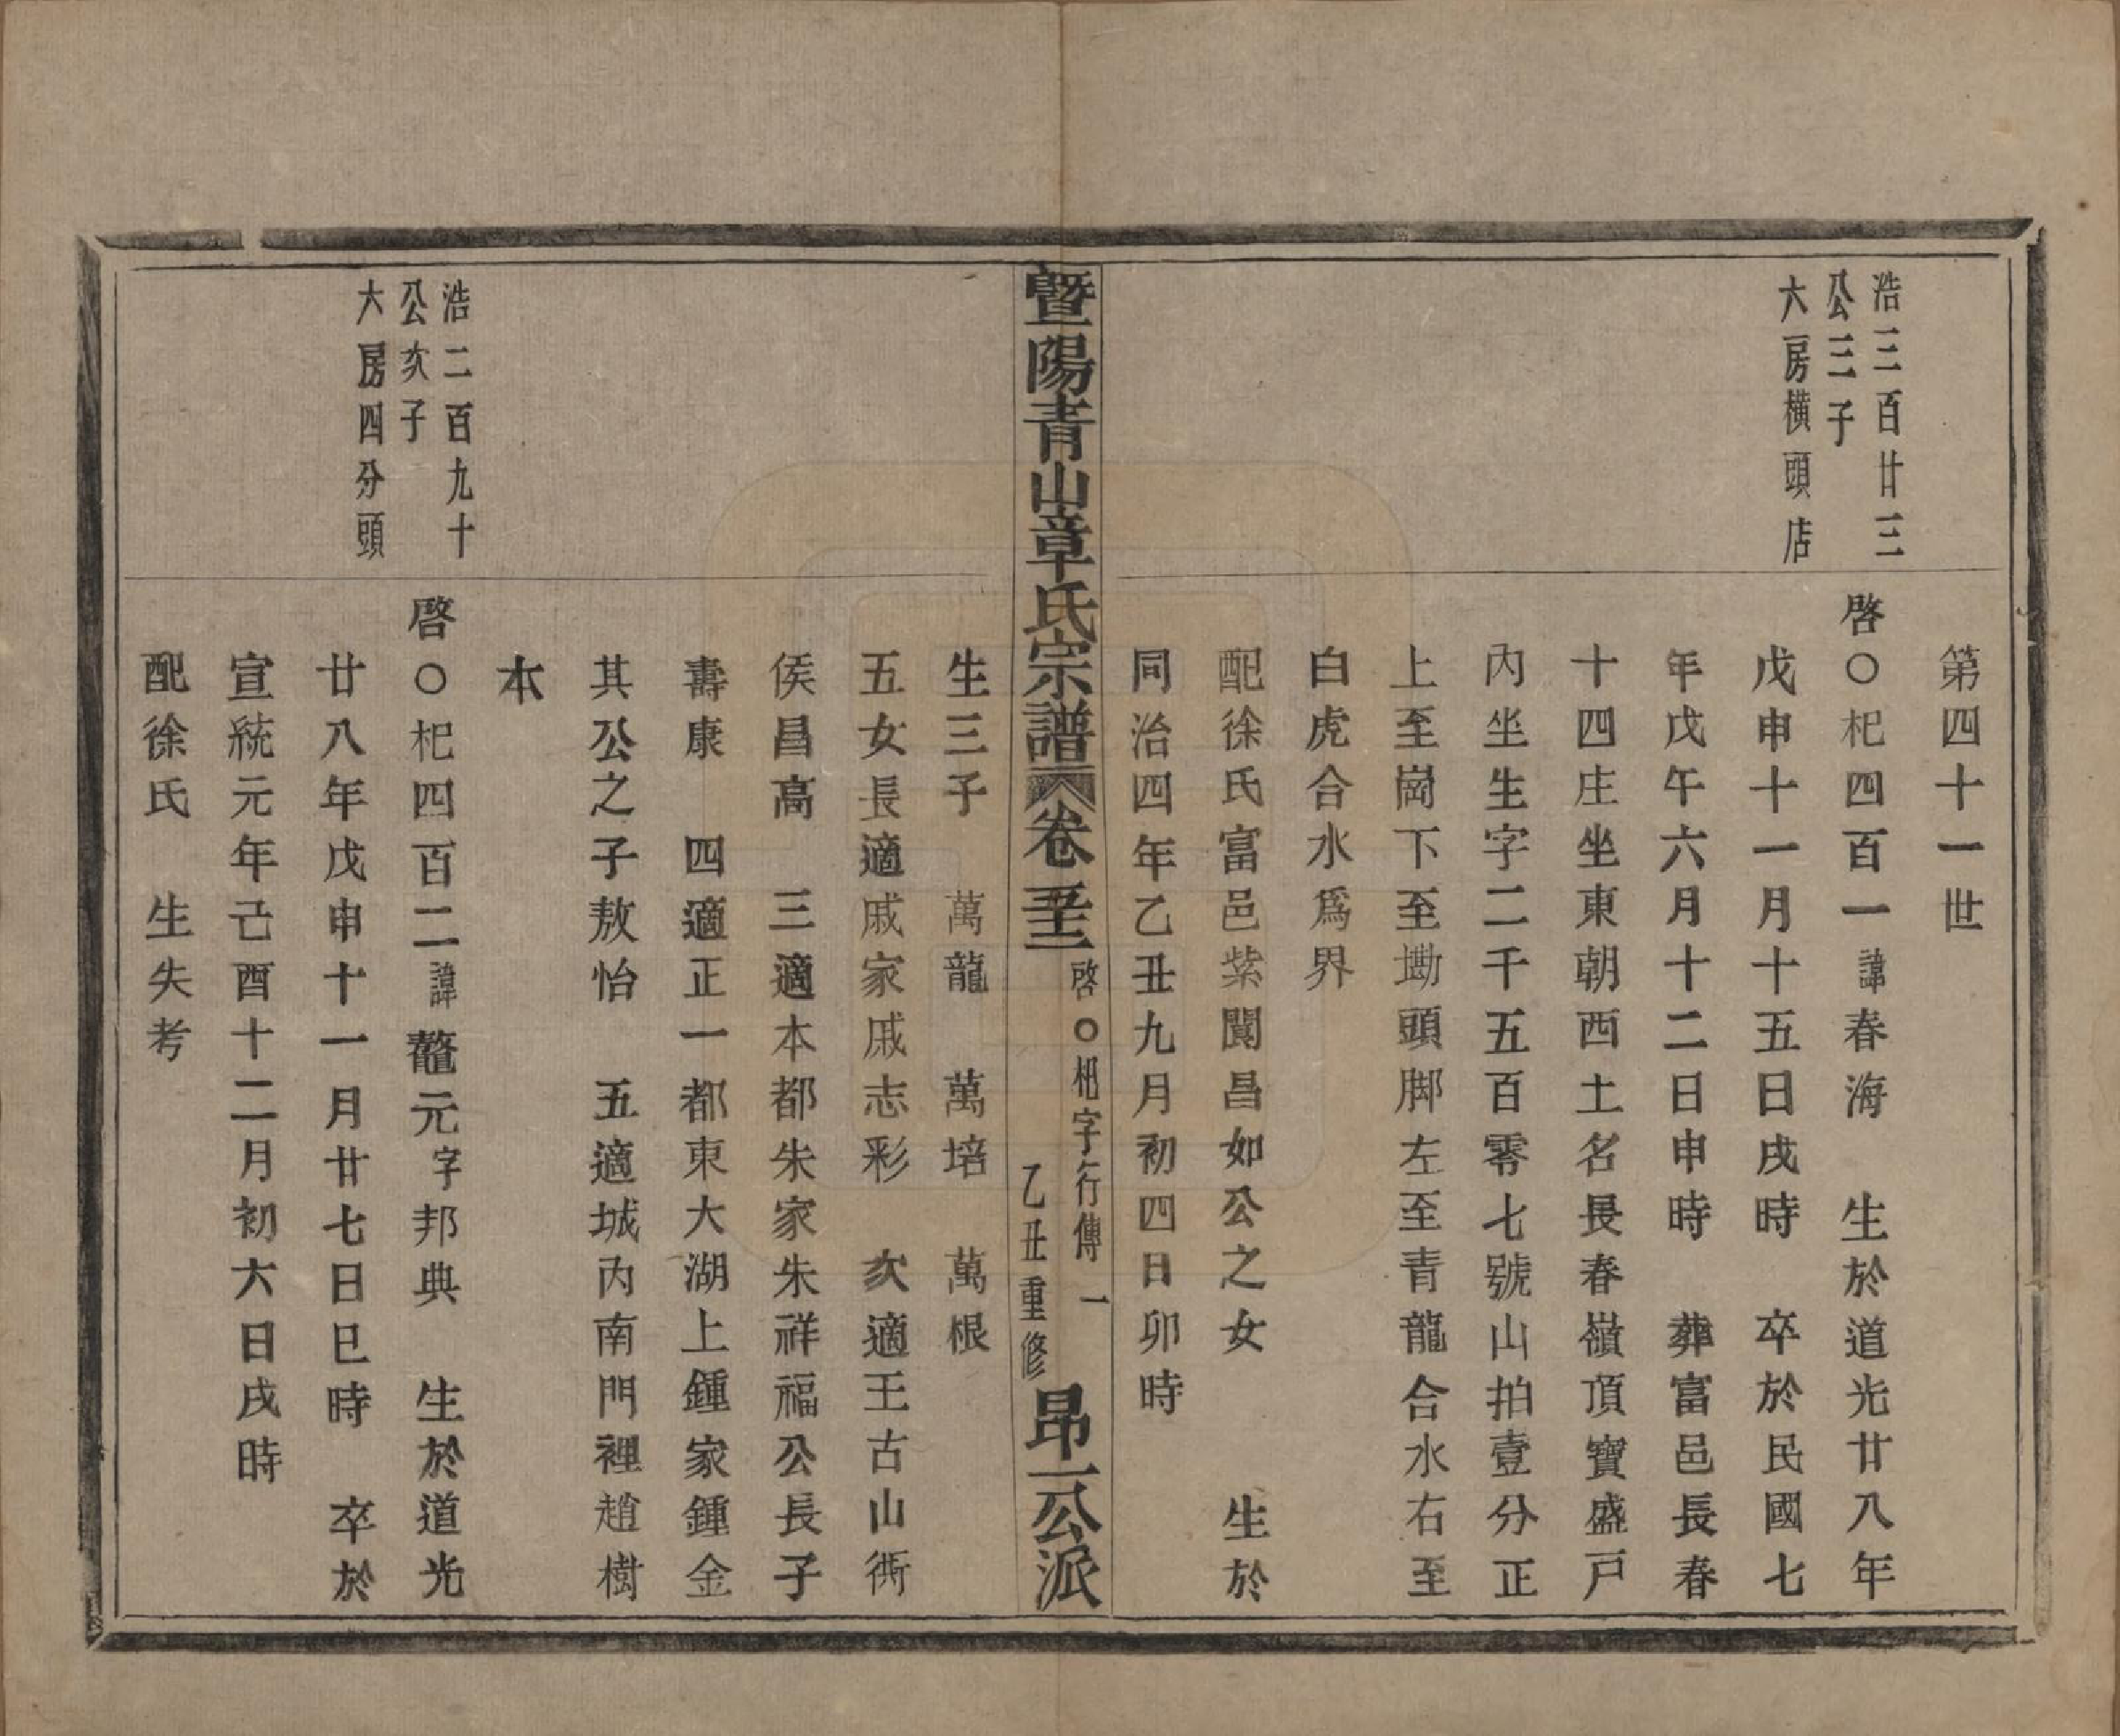 第四十一世
浩三百廿三
公三子
大房橫頭店
啓〇杞四百一諱春海　生於道光廿八年
戊申十一月十五日戌時　卒於民國七
年戊午六月十二日申時　葬富邑長春
十四庄坐東朝西土名長春嶺頂寶盛戸
內坐生字二千五百零七號山拍壹分正
上至崗下至墈頭脚左至青龍合水右至
白虎合水爲界
配徐氏富邑紫閬昌如公之女　　生於
同治四年乙丑九月初四日卯時
暨陽青山章氏宗譜　卷五十二　啓〇杞字行傳　一　乙丑重修　昂一公派
生三子　萬龍　萬培　萬根
五女長適戚家戚志彩　次適王古山衕
侯昌高　三適本都朱家朱祥福公長子
壽康　四適正一都東大湖上鍾家鍾金
其公之子敖怡　五適城內南門裡趙樹
本
浩二百九十
公次子
大房四分頭
啓〇杞四百二諱鼇元字邦典　生於道光
廿八年戊申十一月廿七日巳時　卒於
宣統元年己酉十二月初六日戌時
配徐氏　生失考